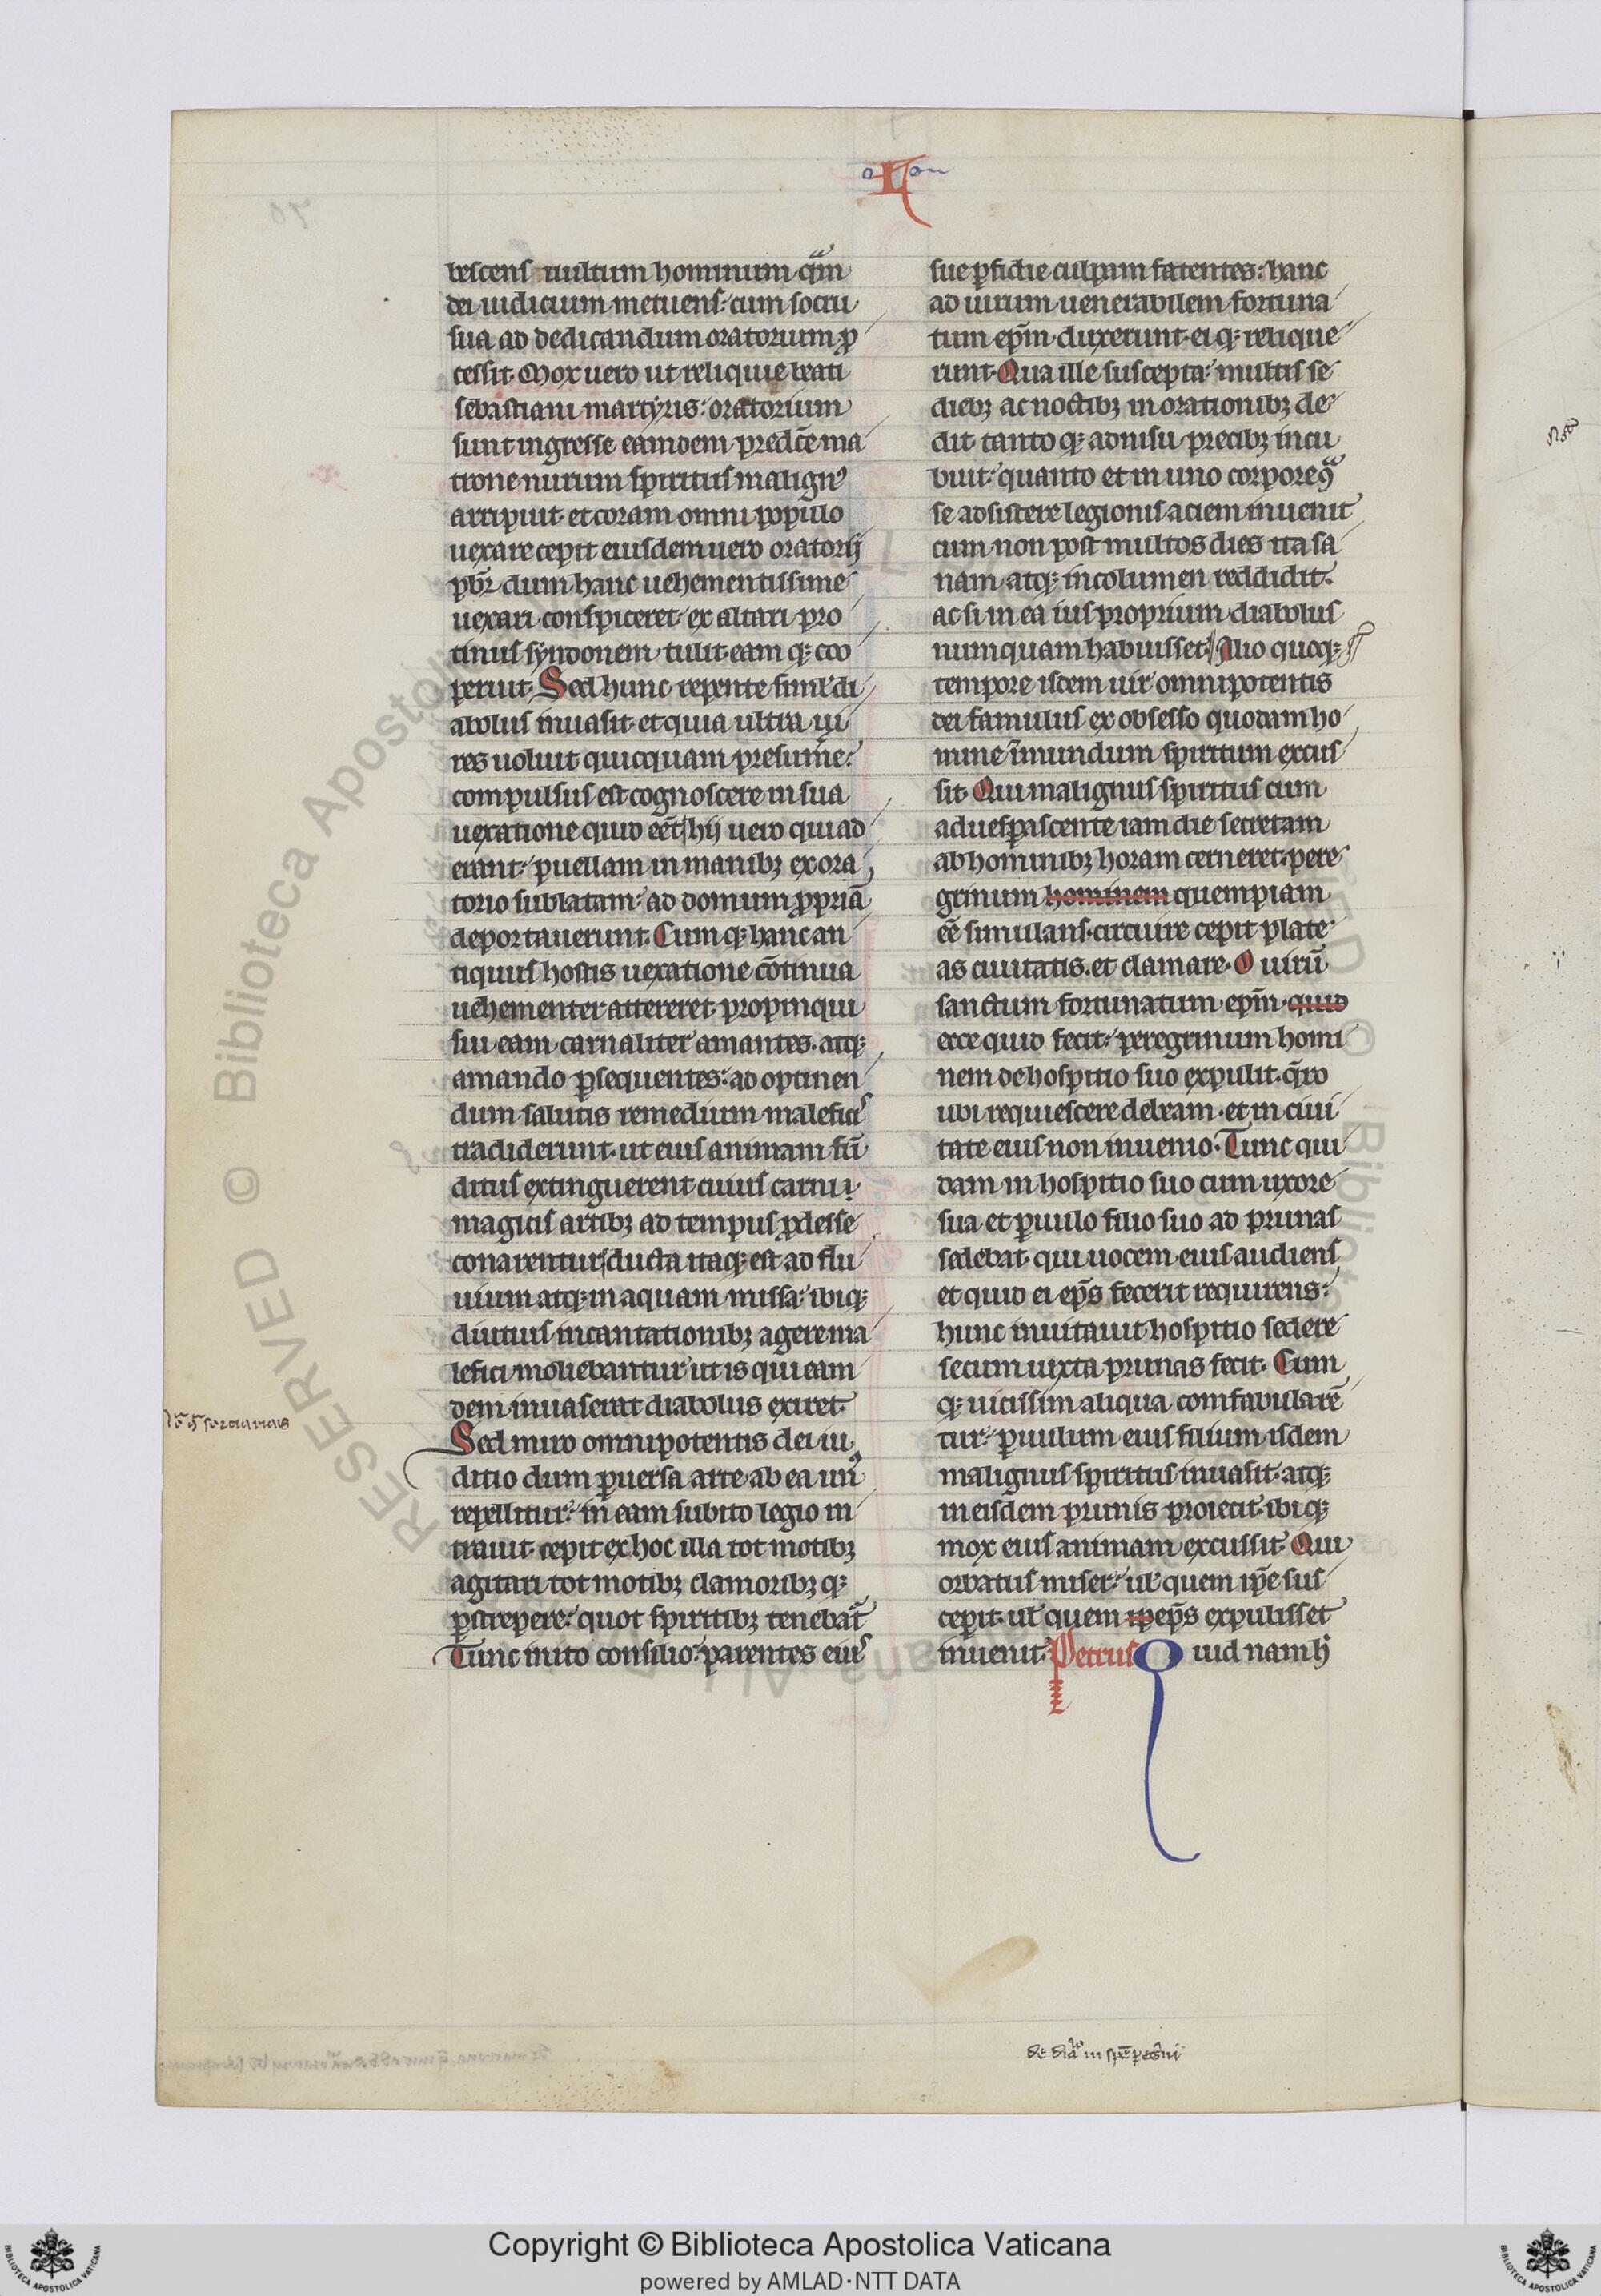 bescens uultum hominum q̃m
dei iudicium metuens: cum socru
sua ad dedicandum oratorium ꝓ
cessit. Mox uero ut reliquie beati
sebastiani martyris: oratorium
sunt ingresse eamdem predc̃e ma
trone nurum spiritus malignꝰ
arripuit. et coram omni populo
uexare cepit eiusdem uero oratorij
pb̃r dum hanc uehementissime
uexari conspiceret. ex altari pro
tinus syndonem tulit. eam qꝫ coo
peruit. Sed hunc repente simĺ di
abolus inuasit. et quia ultra ui
res uoluit quicquam presum̃e:
compulsus est cognoscere in sua
uexatione quid eẽt hij uero qui ad
erant: puellam in manibꝫ ex ora
torio sublatam: ad domum ꝓpriã
deportauerunt. Cum qꝫ hanc an
tiquus hostis uexatione cõtinua
uehementer attereret. propinqui
sui eam carnaliter amantes. atqꝫ
amando ꝑsequentes: ad optinen
dum salutis remedium maleficiˢ
tradiderunt. ut eius animam fũ
ditus extinguerent cuius carni
magicis artibꝫ ad tempus ꝓdesse
conarentur ducta itaqꝫ est ad flu
uium atqꝫ in aquam missa: ibiqꝫ
diutius incantationibꝫ agere ma
lefici moliebantur ut is qui eam
dem inuaserat diabolus exiret.
Sed miro omnipotentis dei iu
ditio dum ꝑuersa arte ab ea unꝰ
repellitur: in eam subito legio in
trauit. cepit ex hoc illa tot motibꝫ
agitari tot motibꝫ clamoribꝫ qꝫ
ꝑstrepere: quot spiritibꝫ tenebat᷑
Tunc inito consilio: parentes eiuˢ
sue ꝑfidie culpam fatentes: hanc
ad uirum uenerabilem fortuna
tum ep̃m duxerunt. ei qꝫ relique
runt. Qua ille suscepta: multis se
diebꝫ ac noctibꝫ in orationibꝫ de
dit. tanto qꝫ adnisu precibꝫ incu
buit: quanto et in uno corpore ꝯͣ
se adsistere legionis aciem inuenit
cum non post multos dies ita sa
nam atqꝫ incolumen reddidit.
ac si in ea ius proprium diabolus
numquam habuisset. Alio quoqꝫ
tempore isdem uir omnipotentis
dei famulus ex obsesso quodam ho
mine ĩmundum spiritum excus
sit. Qui malignus spiritus cum
aduesꝑascente iam die secretam
ab hominibꝫ horam cerneret. pere
grinum hominem quempiam
eẽ simulans. circuire cepit plate
as ciuitatis. et clamare. O uirũ
sanctum fortunatum ep̃m quid
ecce quid fecit: peregrinum homi
nem de hospitio suo expulit. q̃ro
ubi requiescere debeam. et in ciui
tate eius non inuenio. Tunc qui
dam in hospitio suo cum uxore
sua et ꝑuulo filio suo ad prunas
sedebat. qui uocem eius audiens
et quid ei ep̃s fecerit requirens:
hunc inuitauit hospitio sedere
secum iuxta prunas fecit. Cum
qꝫ uicissim aliqua comfabularẽ
tur: ꝑuulum eius filium isdem
malignus spiritus inuasit. atqꝫ
in eisdem prunis proiecit. ibiqꝫ
mox eius animam excussit. Qui
orbatus miser: uĺ quem ip̃e sus
cepit. uĺ quem ip ep̃s expulisset
inuenit. Petrus Quid nam hͥ
Copyright © Biblioteca Apostolica Vaticana
powered by AMLAD·NTT DATA